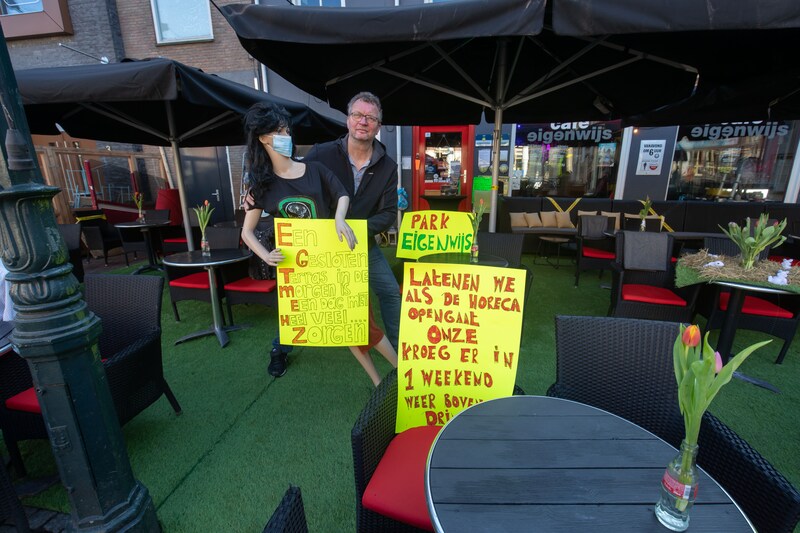 café
eigenwijs
eigenwijs
PARK
EIGENWIJS
Een
GESLOTEN
Terras in de
MORGEN is
Een dag met
HEEL VEEL
Zorgen...
LATENEN WE
ALS DE HORECA
OPENGAAT
ONZE
KROEG ER IN
1 WEEKEND
WEER BOVEN